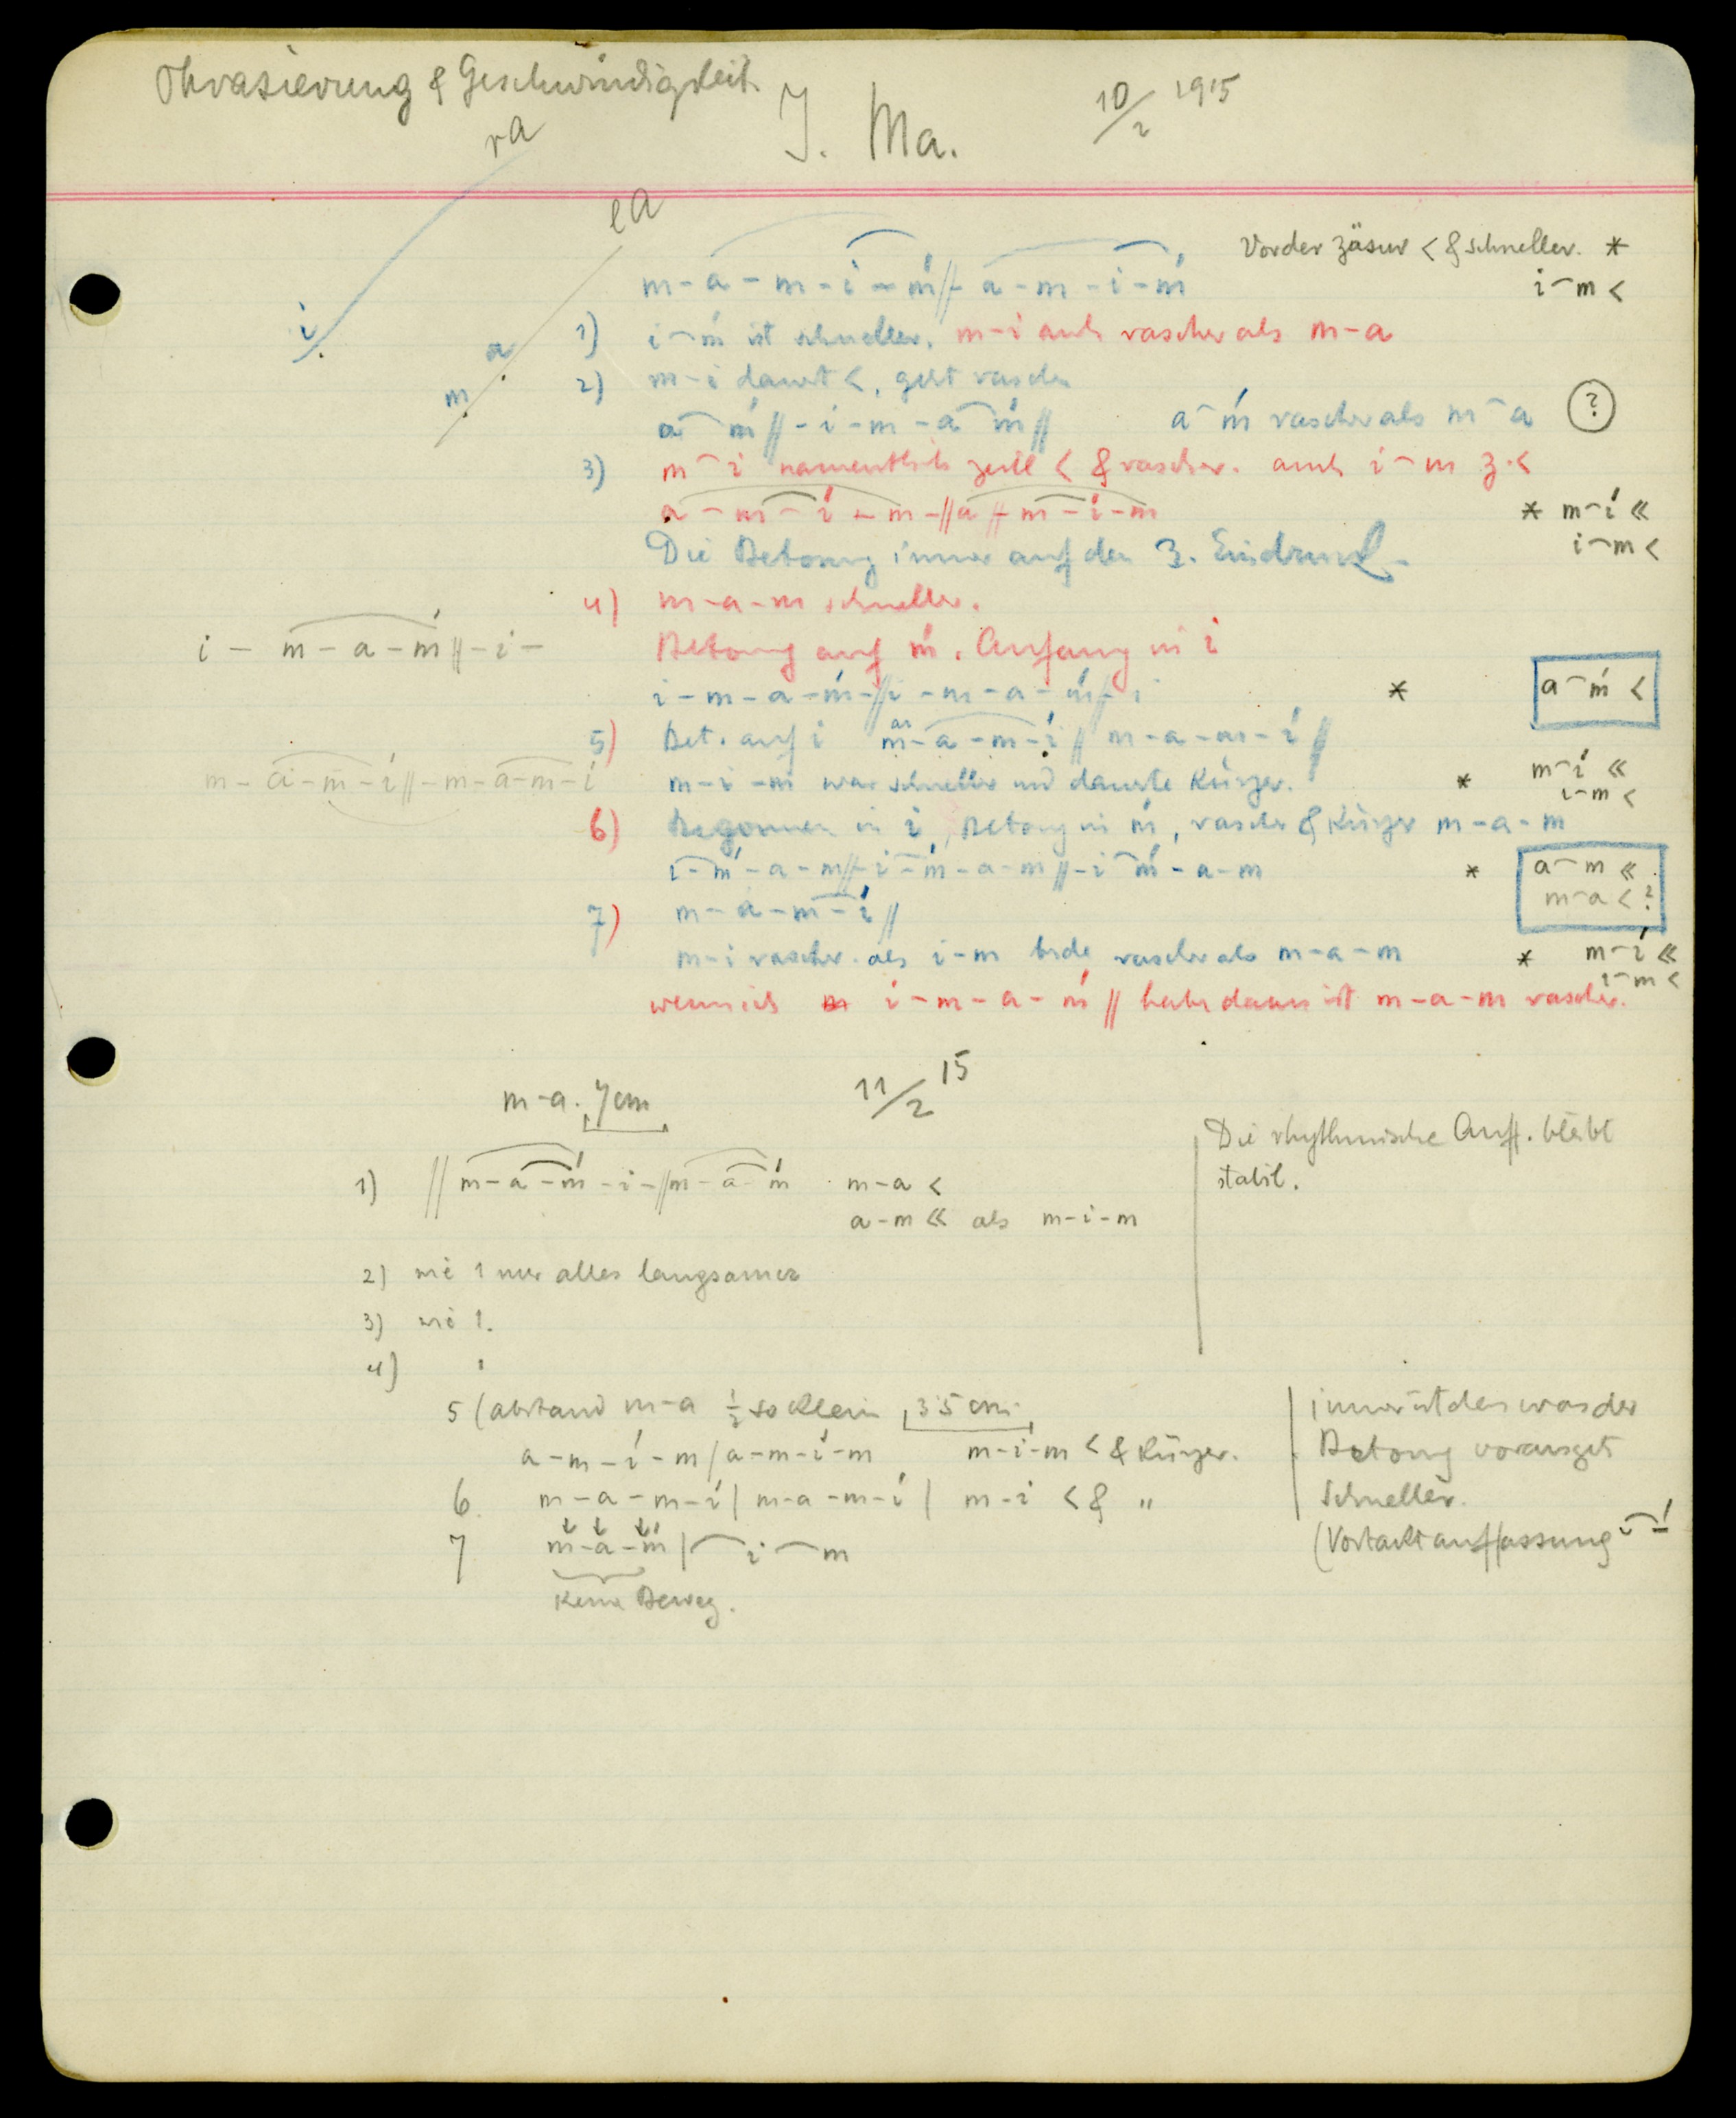 Phrasierung & Geschwindigkeit
J. Ma.
10/2 1915
ra
la
i
a
m
Vor der Zäsur < & schneller. *
m - a - m - i - ḿ // - a - m - i - ḿ
i⁀m <
1) i⁀ḿ ist schneller, m-i auch rascher als m-a
2) m-i dauert <, geht rascher
a⁀ḿ // - i - m - a⁀ḿ // a⁀ḿ rascher als m⁀a (?)
3) m⁀i namentlich zeitl < & rascher. auch i⁀m z. <
a - m - í - m - // a - m - í - m * m⁀í ≪
i⁀m <
Die Betonung immer auf den 3. Eindruck.
4) m-a-m schneller.
i - m - a - ḿ // - i - Betonung auf ḿ. Anfang in i
i - m - a - ḿ - // i - m - a - ḿ // - i * a⁀ḿ <
5) Bet. auf i m - a - m - í // m - a - m - í //
m - a - m - í // - m - a - m - í m-i-m war schneller und dauerte kürzer. * m⁀í ≪
i⁀m <
6) Begonnen in i, Betonung in ḿ, rascher & kürzer m-a-m
i⁀ḿ - a - m // - i⁀ḿ - a - m // - i⁀ḿ - a - m * a⁀m ≪
m⁀a < ?
7) m - a - m⁀í //
m-i rascher als i-m beide rascher als m-a-m * m⁀í ≪
i⁀m <
wenn ich i - m - a - ḿ // habe dann ist m-a-m rascher.
m-a. 7cm
11/2 15
1) // m - a - ḿ - i - // m - a - ḿ m-a <
a-m ≪ als m-i-m
Die rhythmische Auff. bleibt
stabil.
2) wie 1 nur alles langsamer
3) wie 1.
4) "
5 (abstand m-a ½ so klein 3'5 cm.
a - m - í - m / a - m - í - m m-i-m < & kürzer.
6. m - a - m - í | m - a - m - í | m-i < & "
7 m - a - ḿ | ⁀i⁀m
keine Beweg.
immer ist das was der
Betonung vorausgeht
schneller.
(Vortaktauffassung ⏑⁀–́